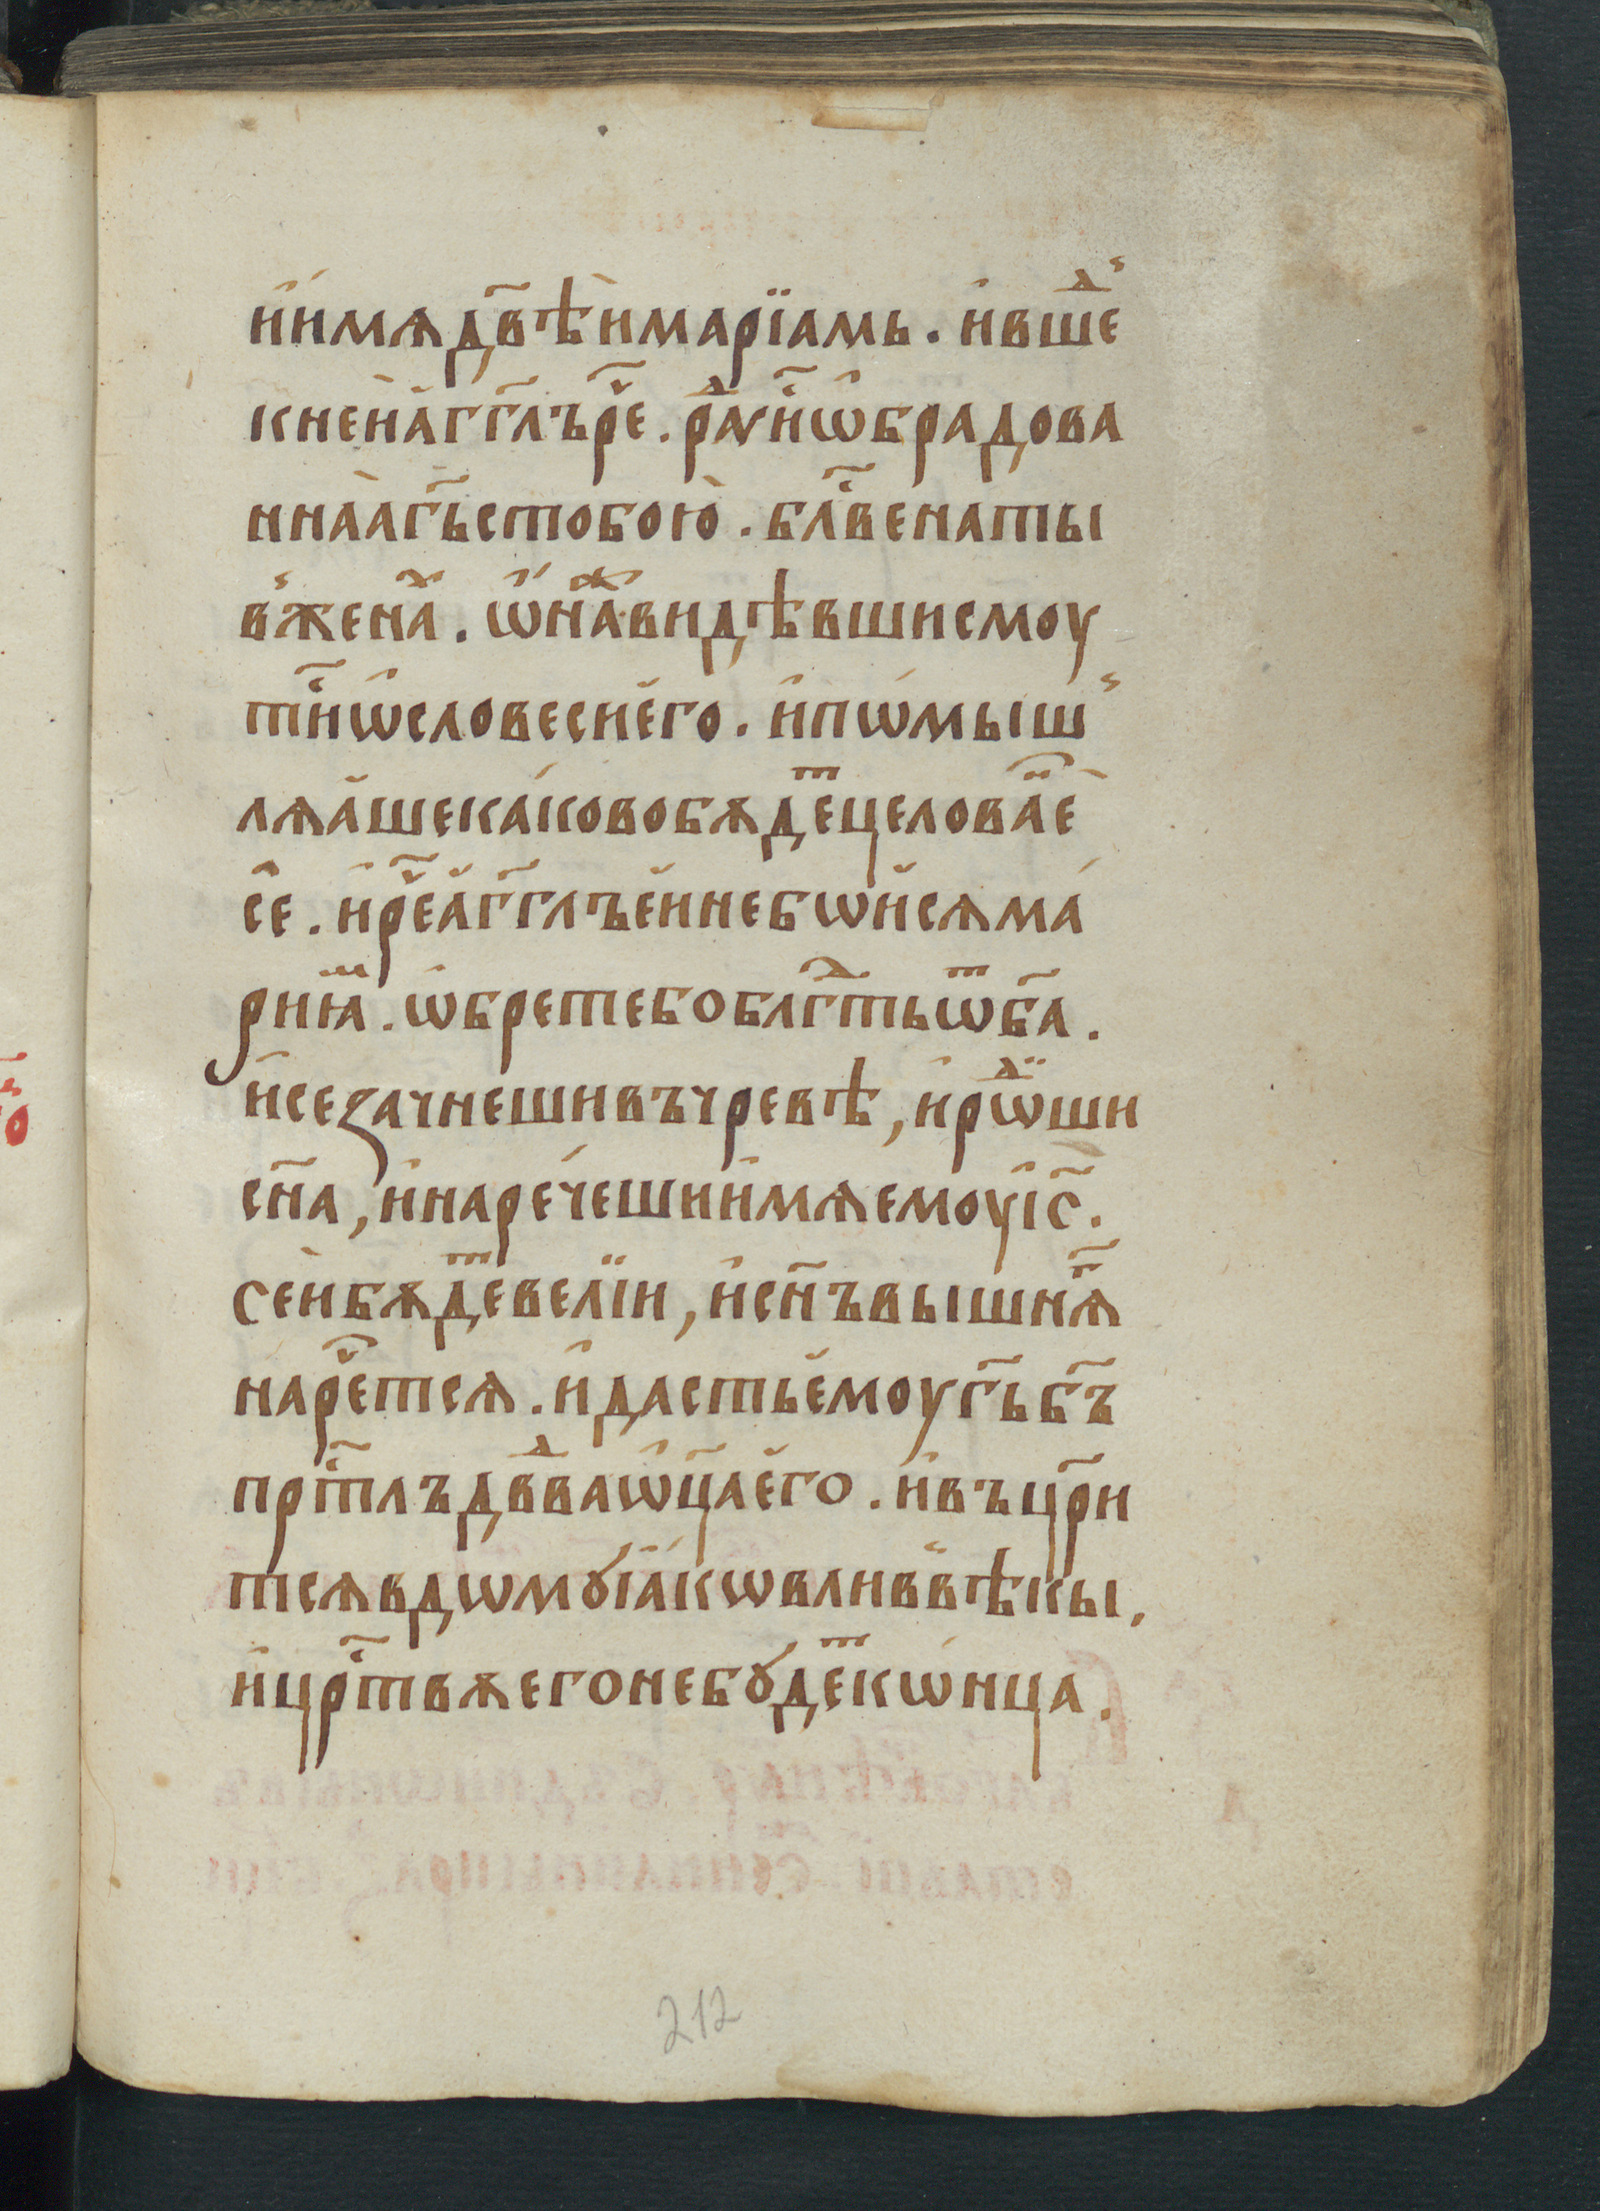 и҆и҆мѧдв҃ѣи҆марїамь . и҆вшеⷣ
кней҆а҆гг҃лърⷱ҇е . раⷣꙋи҆с҃ѡ҆брадова
ннаꙗ҆гь҃стобою̀ . блⷭ҇венаты
вженаⷯ . ѡ҆наⷤвидѣвшисмоу
тиⷭ҇ѡ҆словесне҆го . и҆пѡ́мыш
лѧа҆шека́ковобѫдеⷮцеловаⷩ҇е
се̑ . и҆рⷱ҇еа҆гг҃лъе҆инебѡи҆сѧма́
риꙗⷨ . ѡ҆бретебоблгⷣть҃ѿба҃ .
и҆сеꙁачнешивъчревѣ , и҆рѡⷣши
сн҃а , и҆наре́чешии҆мѧемоуі҆с҃ .
сеи̑бѫдеⷮвелїи , и҆сн҃ъвышнѧⷢ҇
нарⷱ҇етсѧ . и҆дастье҆моугь҃бъ҃
прⷭ҇тлъдв҃ⷣаѡ҆ц҃ае҆го . и҆въцр҃и
тсѧвдѡмꙋ́і҆а҆кѡвливвѣкы ,
и҆црⷭ҇твѧегонебꙋ́деⷮкѡ́нца .
212